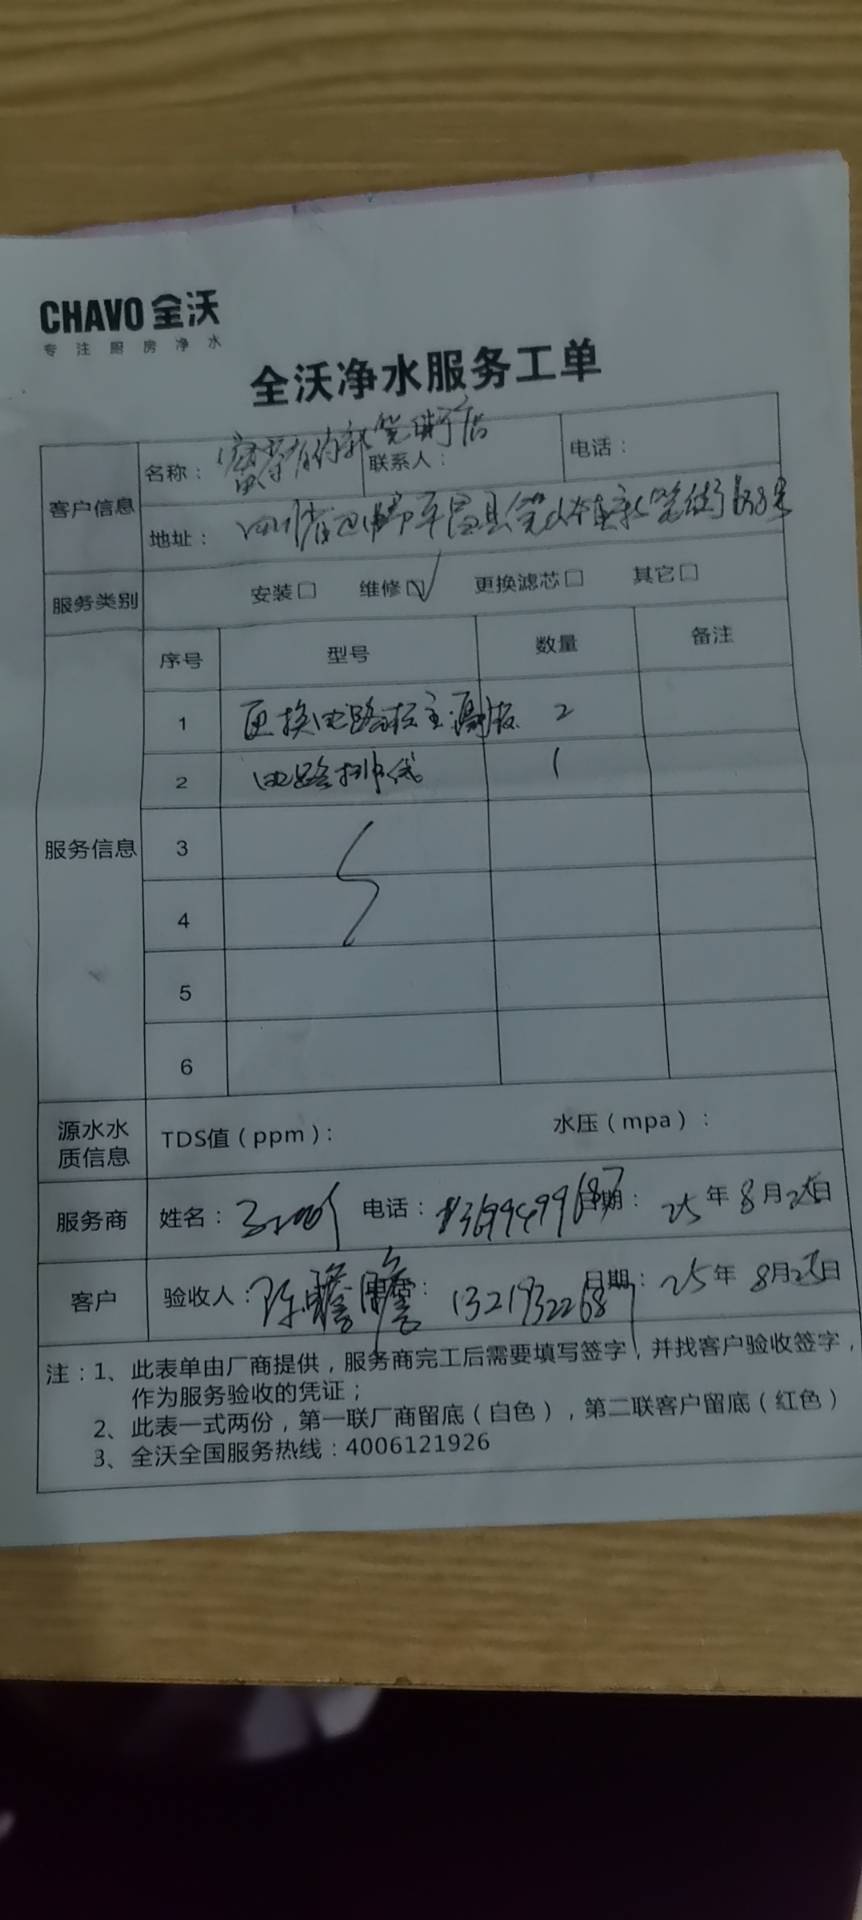 CHAVO 全沃
专注厨房净水
全沃净水服务工单
客户信息
名称：
联系人：
电话：
地址：四川省巴中市平昌县
服务类别 安装□ 维修☑ 更换滤芯□ 其它□
服务信息
序号 型号 数量 备注
1 更换电路板主 板 2
2 电路排线 1
3
4
5
6
源水水质信息 TDS值（ppm）： 水压（mpa）：
服务商 姓名： 电话：13699499687 日期：25年8月25日
客户 验收人：陈瞻瞻 13219322687 日期：25年8月25日
注：1、此表单由厂商提供，服务商完工后需要填写签字，并找客户验收签字，
作为服务验收的凭证；
2、此表一式两份，第一联厂商留底（白色），第二联客户留底（红色）
3、全沃全国服务热线：4006121926